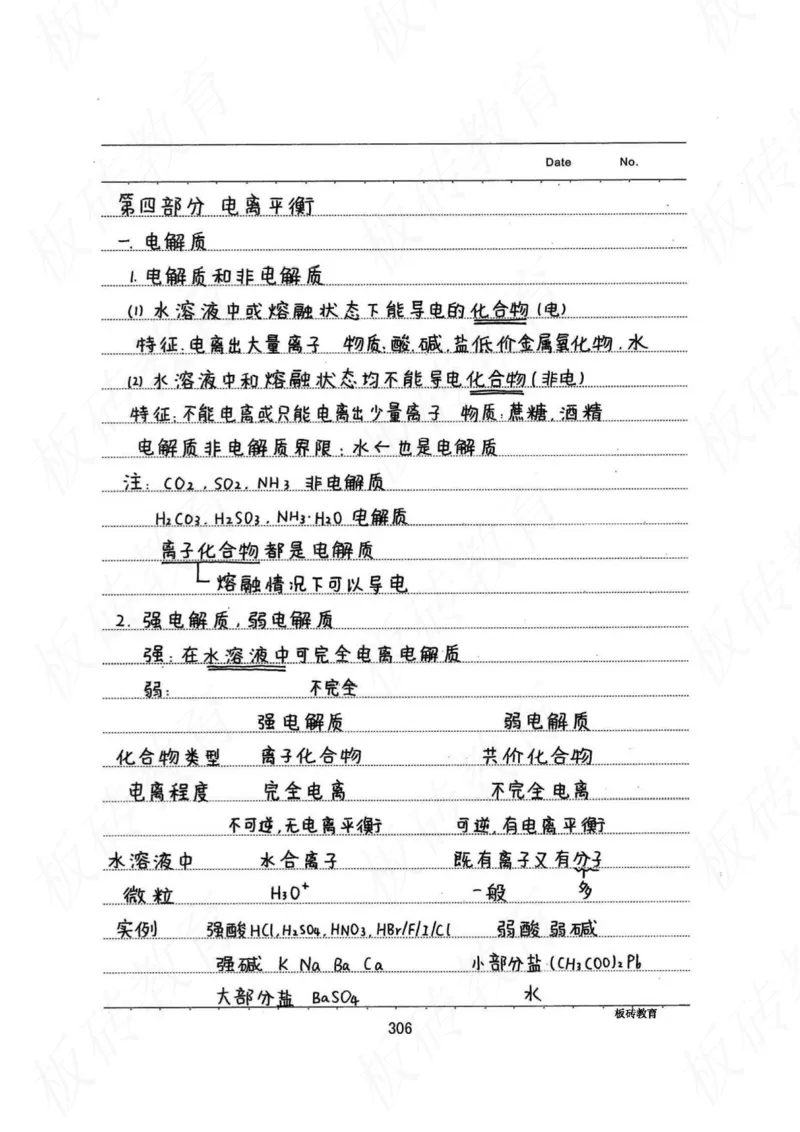 Date No.
第四部分 电离平衡
一. 电解质
1. 电解质和非电解质
(1) 水溶液中或熔融状态下能导电的化合物(电)
特征:电离出大量离子 物质:酸.碱.盐低价金属氧化物.水
(2) 水溶液中和熔融状态均不能导电化合物(非电)
特征:不能电离或只能电离出少量离子 物质:蔗糖.酒精
电解质非电解质界限:水←也是电解质
注: CO2 . SO2 . NH3 非电解质
H2CO3. H2SO3 . NH3·H2O 电解质
离子化合物都是电解质
熔融情况下可以导电
2. 强电解质,弱电解质
强:在水溶液中可完全电离电解质
弱: 不完全
强电解质 弱电解质
化合物类型 离子化合物 共价化合物
电离程度 完全电离 不完全电离
不可逆,无电离平衡 可逆,有电离平衡
水溶液中 水合离子 既有离子又有分子
微粒 H3O+ 一般 多
实例 强酸HCl,H2SO4,HNO3,HBr/F/I/Cl 弱酸 弱碱
强碱 K Na Ba Ca 小部分盐(CH3COO)2Pb
大部分盐 BaSO4 水
板砖教育
306